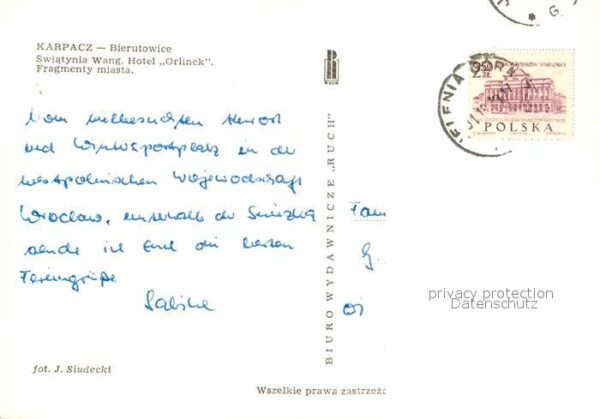 KARPACZ — Bierutowice
Świątynia Wang. Hotel „Orlinek".
Fragmenty miasta.
RUCH
Vom vielbesuchten Kurort
und Wintersportplatz in der
westpolnischen Wojewodschaft
Wrocław, unterhalb der Śnieżka
sende ich Euch die besten
Feriengrüße
Sabine
fot. J. Siudecki
BIURO WYDAWNICZE „RUCH"
Wszelkie prawa zastrzeżo
2,50 ZŁ
WIEKÓW WARSZAWY
POLSKA
JELENIA GÓRA
Fam
G.
privacy protection
Datenschutz
G.